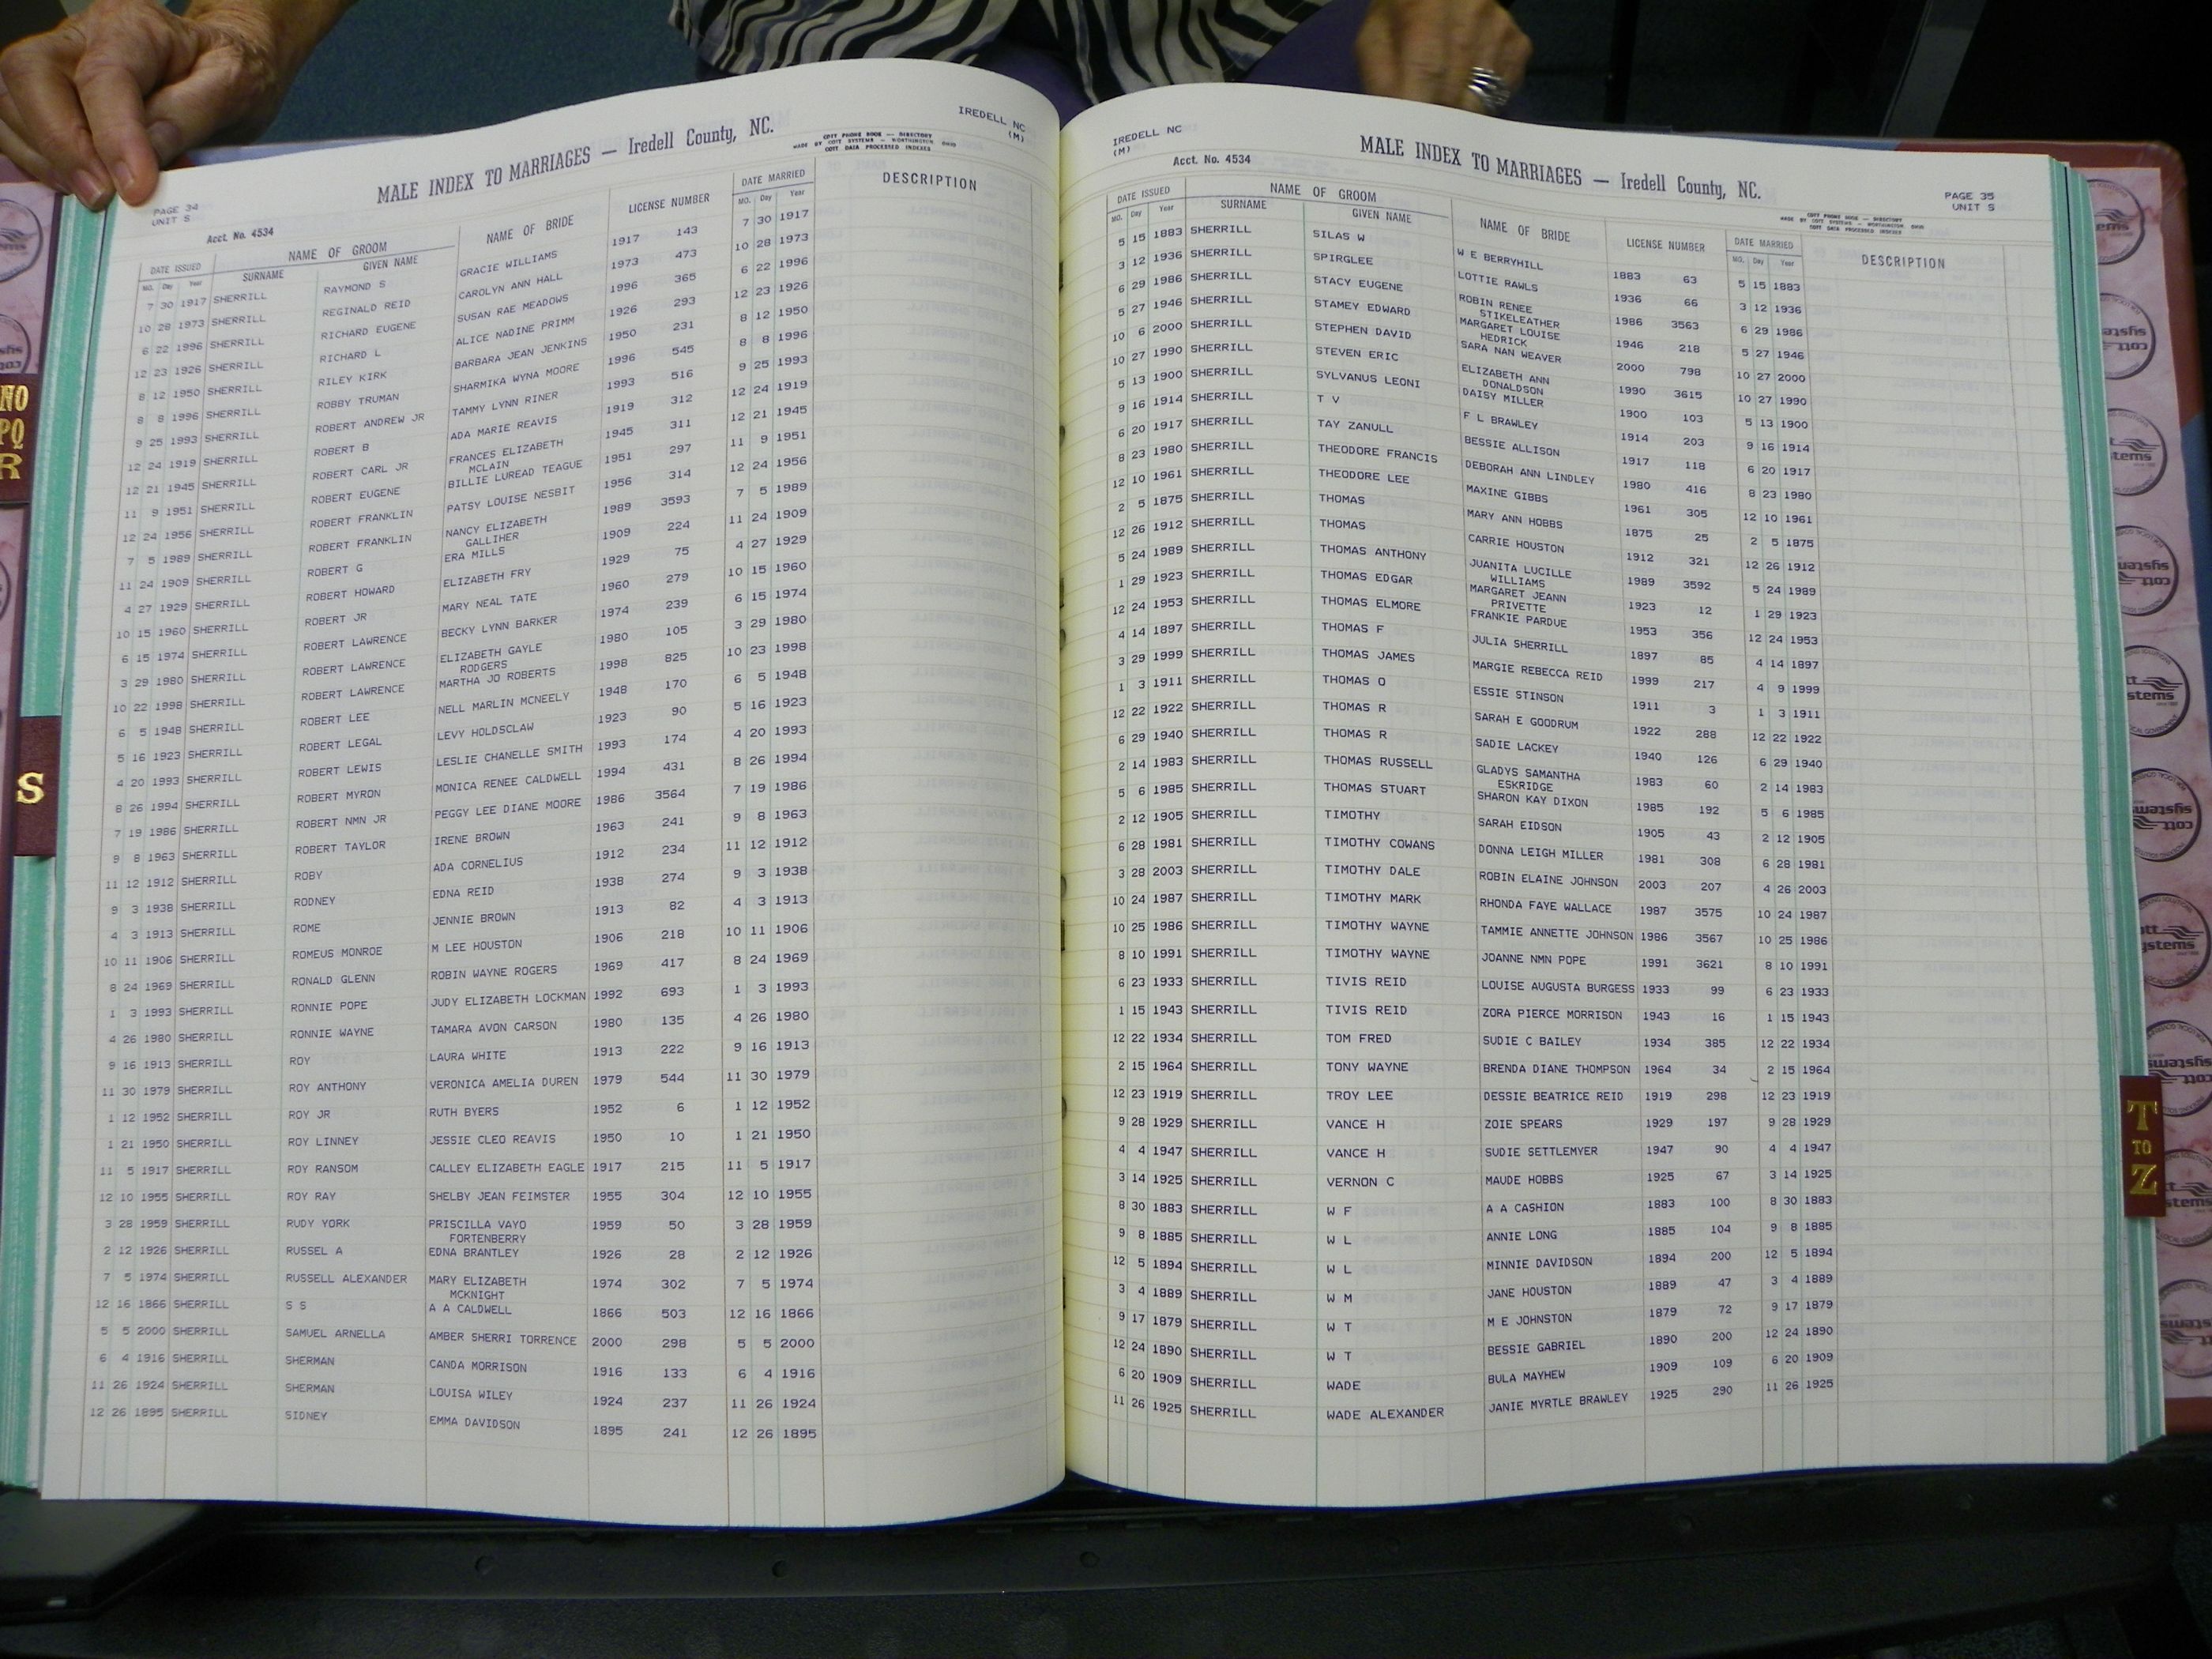 IREDELL NC
(M)
MALE INDEX TO MARRIAGES — Iredell County, NC.
COTT PHONE BOOK — DIRECTORY
MADE BY COTT SYSTEMS — WORTHINGTON, OHIO
COTT DATA PROCESSED INDEXES
PAGE 34
UNIT S
Acct. No. 4534
DATE ISSUED NAME OF GROOM NAME OF BRIDE LICENSE NUMBER DATE MARRIED DESCRIPTION
MO. Day Year SURNAME GIVEN NAME MO. Day Year
7 30 1917 SHERRILL RAYMOND S GRACIE WILLIAMS 1917 143 7 30 1917
10 28 1973 SHERRILL REGINALD REID CAROLYN ANN HALL 1973 473 10 28 1973
6 22 1996 SHERRILL RICHARD EUGENE SUSAN RAE MEADOWS 1996 365 6 22 1996
12 23 1926 SHERRILL RICHARD L ALICE NADINE PRIMM 1926 293 12 23 1926
8 12 1950 SHERRILL RILEY KIRK BARBARA JEAN JENKINS 1950 231 8 12 1950
8 8 1996 SHERRILL ROBBY TRUMAN SHARMIKA WYNA MOORE 1996 545 8 8 1996
9 25 1993 SHERRILL ROBERT ANDREW JR TAMMY LYNN RINER 1993 516 9 25 1993
12 24 1919 SHERRILL ROBERT B ADA MARIE REAVIS 1919 312 12 24 1919
12 21 1945 SHERRILL ROBERT CARL JR FRANCES ELIZABETH 1945 311 12 21 1945
MCLAIN
11 9 1951 SHERRILL ROBERT EUGENE BILLIE LUREAD TEAGUE 1951 297 11 9 1951
12 24 1956 SHERRILL ROBERT FRANKLIN PATSY LOUISE NESBIT 1956 314 12 24 1956
7 5 1989 SHERRILL ROBERT FRANKLIN NANCY ELIZABETH 1989 3593 7 5 1989
GALLIHER
11 24 1909 SHERRILL ROBERT G ERA MILLS 1909 224 11 24 1909
4 27 1929 SHERRILL ROBERT HOWARD ELIZABETH FRY 1929 75 4 27 1929
10 15 1960 SHERRILL ROBERT JR MARY NEAL TATE 1960 279 10 15 1960
6 15 1974 SHERRILL ROBERT LAWRENCE BECKY LYNN BARKER 1974 239 6 15 1974
3 29 1980 SHERRILL ROBERT LAWRENCE ELIZABETH GAYLE 1980 105 3 29 1980
RODGERS
10 22 1998 SHERRILL ROBERT LAWRENCE MARTHA JO ROBERTS 1998 825 10 23 1998
6 5 1948 SHERRILL ROBERT LEE NELL MARLIN MCNEELY 1948 170 6 5 1948
5 16 1923 SHERRILL ROBERT LEGAL LEVY HOLDSCLAW 1923 90 5 16 1923
4 20 1993 SHERRILL ROBERT LEWIS LESLIE CHANELLE SMITH 1993 174 4 20 1993
8 26 1994 SHERRILL ROBERT MYRON MONICA RENEE CALDWELL 1994 431 8 26 1994
7 19 1986 SHERRILL ROBERT NMN JR PEGGY LEE DIANE MOORE 1986 3564 7 19 1986
9 8 1963 SHERRILL ROBERT TAYLOR IRENE BROWN 1963 241 9 8 1963
11 12 1912 SHERRILL ROBY ADA CORNELIUS 1912 234 11 12 1912
9 3 1938 SHERRILL RODNEY EDNA REID 1938 274 9 3 1938
4 3 1913 SHERRILL ROME JENNIE BROWN 1913 82 4 3 1913
10 11 1906 SHERRILL ROMEUS MONROE M LEE HOUSTON 1906 218 10 11 1906
8 24 1969 SHERRILL RONALD GLENN ROBIN WAYNE ROGERS 1969 417 8 24 1969
1 3 1993 SHERRILL RONNIE POPE JUDY ELIZABETH LOCKMAN 1992 693 1 3 1993
4 26 1980 SHERRILL RONNIE WAYNE TAMARA AVON CARSON 1980 135 4 26 1980
9 16 1913 SHERRILL ROY LAURA WHITE 1913 222 9 16 1913
11 30 1979 SHERRILL ROY ANTHONY VERONICA AMELIA DUREN 1979 544 11 30 1979
1 12 1952 SHERRILL ROY JR RUTH BYERS 1952 6 1 12 1952
1 21 1950 SHERRILL ROY LINNEY JESSIE CLEO REAVIS 1950 10 1 21 1950
11 5 1917 SHERRILL ROY RANSOM CALLEY ELIZABETH EAGLE 1917 215 11 5 1917
12 10 1955 SHERRILL ROY RAY SHELBY JEAN FEIMSTER 1955 304 12 10 1955
3 28 1959 SHERRILL RUDY YORK PRISCILLA VAYO 1959 50 3 28 1959
FORTENBERRY
2 12 1926 SHERRILL RUSSEL A EDNA BRANTLEY 1926 28 2 12 1926
7 5 1974 SHERRILL RUSSELL ALEXANDER MARY ELIZABETH 1974 302 7 5 1974
MCKNIGHT
12 16 1866 SHERRILL S S A A CALDWELL 1866 503 12 16 1866
5 5 2000 SHERRILL SAMUEL ARNELLA AMBER SHERRI TORRENCE 2000 298 5 5 2000
6 4 1916 SHERRILL SHERMAN CANDA MORRISON 1916 133 6 4 1916
11 26 1924 SHERRILL SHERMAN LOUISA WILEY 1924 237 11 26 1924
12 26 1895 SHERRILL SIDNEY EMMA DAVIDSON 1895 241 12 26 1895
IREDELL NC
(M)
MALE INDEX TO MARRIAGES — Iredell County, NC.
Acct. No. 4534
PAGE 35
UNIT S
COTT PHONE BOOK — DIRECTORY
MADE BY COTT SYSTEMS — WORTHINGTON, OHIO
COTT DATA PROCESSED INDEXES
DATE ISSUED NAME OF GROOM NAME OF BRIDE LICENSE NUMBER DATE MARRIED DESCRIPTION
MO. Day Year SURNAME GIVEN NAME MO. Day Year
5 15 1883 SHERRILL SILAS W W E BERRYHILL 1883 63 5 15 1883
3 12 1936 SHERRILL SPIRGLEE LOTTIE RAWLS 1936 66 3 12 1936
6 29 1986 SHERRILL STACY EUGENE ROBIN RENEE 1986 3563 6 29 1986
STIKELEATHER
5 27 1946 SHERRILL STAMEY EDWARD MARGARET LOUISE 1946 218 5 27 1946
HEDRICK
10 6 2000 SHERRILL STEPHEN DAVID SARA NAN WEAVER 2000 798 10 27 2000
10 27 1990 SHERRILL STEVEN ERIC ELIZABETH ANN 1990 3615 10 27 1990
DONALDSON
5 13 1900 SHERRILL SYLVANUS LEONI DAISY MILLER 1900 103 5 13 1900
9 16 1914 SHERRILL T V F L BRAWLEY 1914 203 9 16 1914
6 20 1917 SHERRILL TAY ZANULL BESSIE ALLISON 1917 118 6 20 1917
8 23 1980 SHERRILL THEODORE FRANCIS DEBORAH ANN LINDLEY 1980 416 8 23 1980
12 10 1961 SHERRILL THEODORE LEE MAXINE GIBBS 1961 305 12 10 1961
2 5 1875 SHERRILL THOMAS MARY ANN HOBBS 1875 25 2 5 1875
12 26 1912 SHERRILL THOMAS CARRIE HOUSTON 1912 321 12 26 1912
5 24 1989 SHERRILL THOMAS ANTHONY JUANITA LUCILLE 1989 3592 5 24 1989
WILLIAMS
1 29 1923 SHERRILL THOMAS EDGAR MARGARET JEANN 1923 12 1 29 1923
PRIVETTE
12 24 1953 SHERRILL THOMAS ELMORE FRANKIE PARDUE 1953 356 12 24 1953
4 14 1897 SHERRILL THOMAS F JULIA SHERRILL 1897 85 4 14 1897
3 29 1999 SHERRILL THOMAS JAMES MARGIE REBECCA REID 1999 217 4 9 1999
1 3 1911 SHERRILL THOMAS O ESSIE STINSON 1911 3 1 3 1911
12 22 1922 SHERRILL THOMAS R SARAH E GOODRUM 1922 288 12 22 1922
6 29 1940 SHERRILL THOMAS R SADIE LACKEY 1940 126 6 29 1940
2 14 1983 SHERRILL THOMAS RUSSELL GLADYS SAMANTHA 1983 60 2 14 1983
ESKRIDGE
5 6 1985 SHERRILL THOMAS STUART SHARON KAY DIXON 1985 192 5 6 1985
2 12 1905 SHERRILL TIMOTHY SARAH EIDSON 1905 43 2 12 1905
6 28 1981 SHERRILL TIMOTHY COWANS DONNA LEIGH MILLER 1981 308 6 28 1981
3 28 2003 SHERRILL TIMOTHY DALE ROBIN ELAINE JOHNSON 2003 207 4 26 2003
10 24 1987 SHERRILL TIMOTHY MARK RHONDA FAYE WALLACE 1987 3575 10 24 1987
10 25 1986 SHERRILL TIMOTHY WAYNE TAMMIE ANNETTE JOHNSON 1986 3567 10 25 1986
8 10 1991 SHERRILL TIMOTHY WAYNE JOANNE NMN POPE 1991 3621 8 10 1991
6 23 1933 SHERRILL TIVIS REID LOUISE AUGUSTA BURGESS 1933 99 6 23 1933
1 15 1943 SHERRILL TIVIS REID ZORA PIERCE MORRISON 1943 16 1 15 1943
12 22 1934 SHERRILL TOM FRED SUDIE C BAILEY 1934 385 12 22 1934
2 15 1964 SHERRILL TONY WAYNE BRENDA DIANE THOMPSON 1964 34 2 15 1964
12 23 1919 SHERRILL TROY LEE DESSIE BEATRICE REID 1919 298 12 23 1919
9 28 1929 SHERRILL VANCE H ZOIE SPEARS 1929 197 9 28 1929
4 4 1947 SHERRILL VANCE H SUDIE SETTLEMYER 1947 90 4 4 1947
3 14 1925 SHERRILL VERNON C MAUDE HOBBS 1925 67 3 14 1925
8 30 1883 SHERRILL W F A A CASHION 1883 100 8 30 1883
9 8 1885 SHERRILL W L ANNIE LONG 1885 104 9 8 1885
12 5 1894 SHERRILL W L MINNIE DAVIDSON 1894 200 12 5 1894
3 4 1889 SHERRILL W M JANE HOUSTON 1889 47 3 4 1889
9 17 1879 SHERRILL W T M E JOHNSTON 1879 72 9 17 1879
12 24 1890 SHERRILL W T BESSIE GABRIEL 1890 200 12 24 1890
6 20 1909 SHERRILL WADE BULA MAYHEW 1909 109 6 20 1909
11 26 1925 SHERRILL WADE ALEXANDER JANIE MYRTLE BRAWLEY 1925 290 11 26 1925
NO
PQ
R
S
T
TO
Z
cott
systems